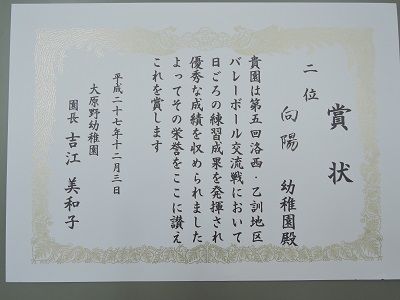 賞状
二位
向陽 幼稚園殿
貴園は第五回洛西・乙訓地区
バレーボール交流戦において
日ごろの練習成果を発揮され
優秀な成績を収められました
よってその栄誉をここに讃え
これを賞します
平成二十七年十二月三日
大原野幼稚園
園長 吉江 美和子